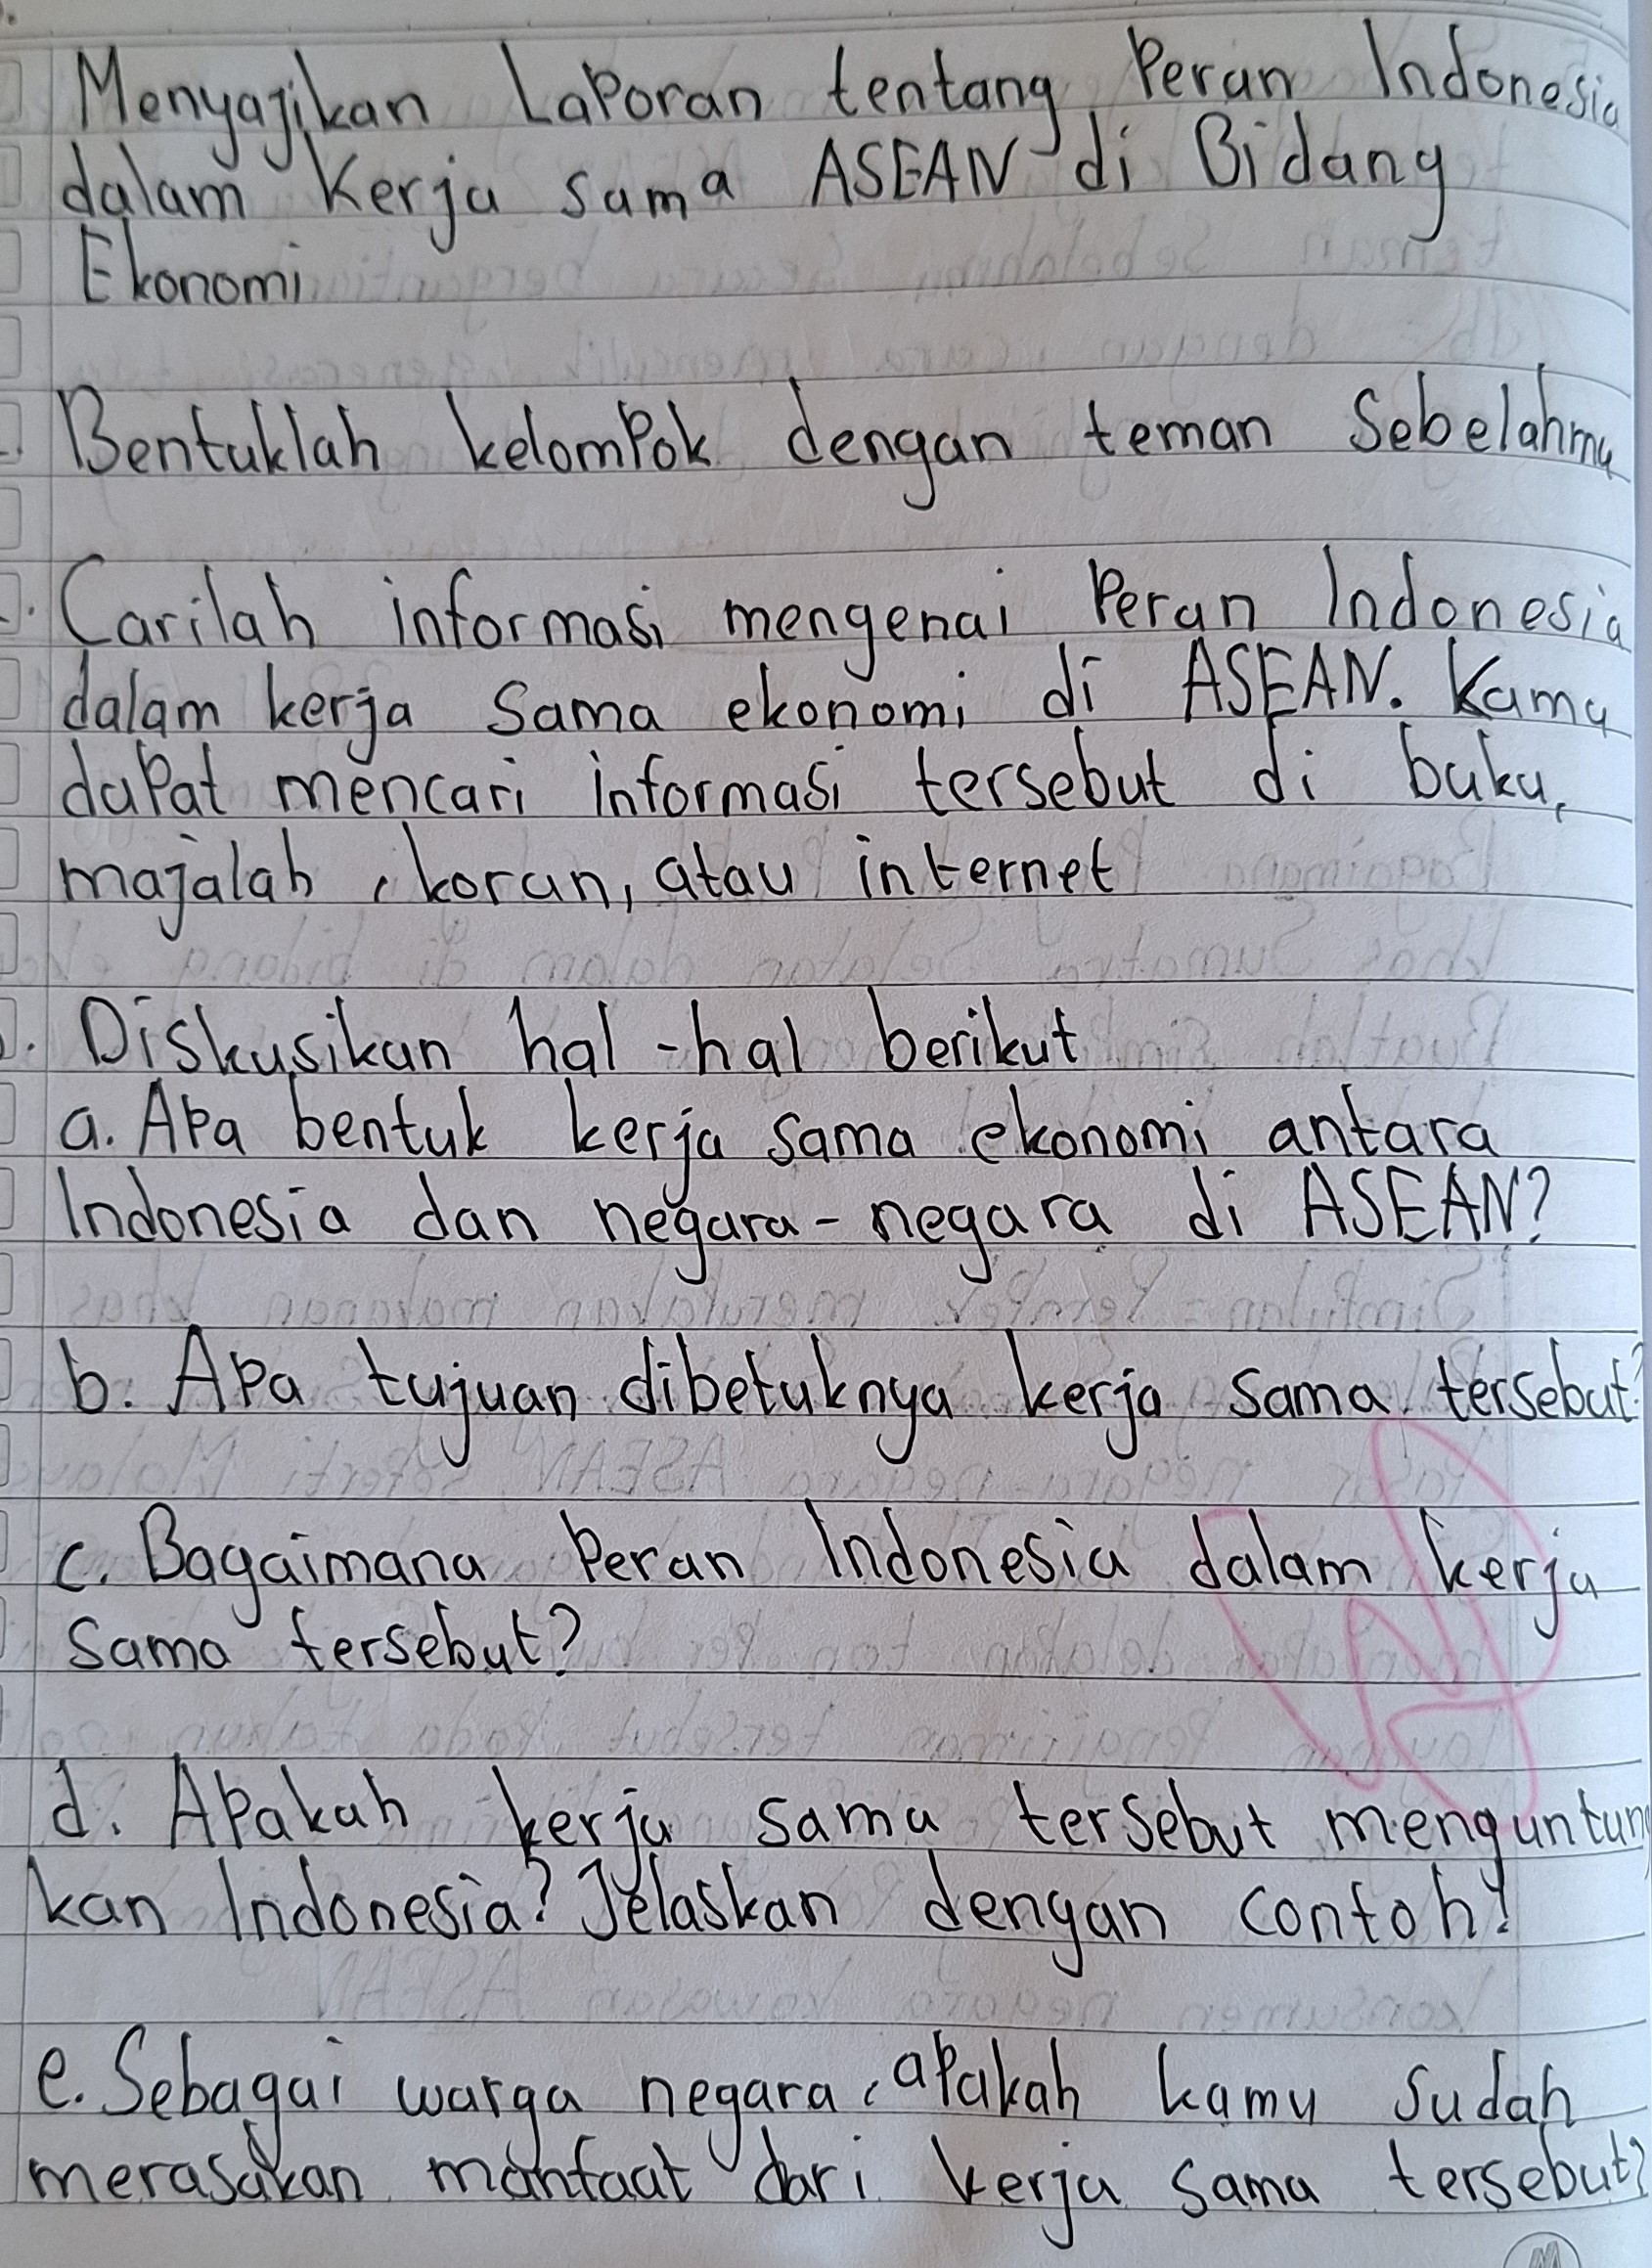 Menyajikan Laporan tentang Peran Indonesia
dalam Kerja sama ASEAN di Bidang
Ekonomi
Bentuklah kelompok dengan teman Sebelahmu
Carilah informasi mengenai Peran Indonesia
dalam kerja sama ekonomi di ASEAN. Kamu
dapat mencari informasi tersebut di buku,
majalah, koran, atau internet
Diskusikan hal-hal berikut
a. Apa bentuk kerja sama ekonomi antara
Indonesia dan negara-negara di ASEAN?
b. Apa tujuan dibetuknya kerja sama tersebut?
c. Bagaimana Peran Indonesia dalam kerja
sama tersebut?
d. Apakah kerja sama tersebut menguntung
kan Indonesia? Jelaskan dengan contoh!
e. Sebagai warga negara, apakah kamu sudah
merasakan manfaat dari kerja sama tersebut?